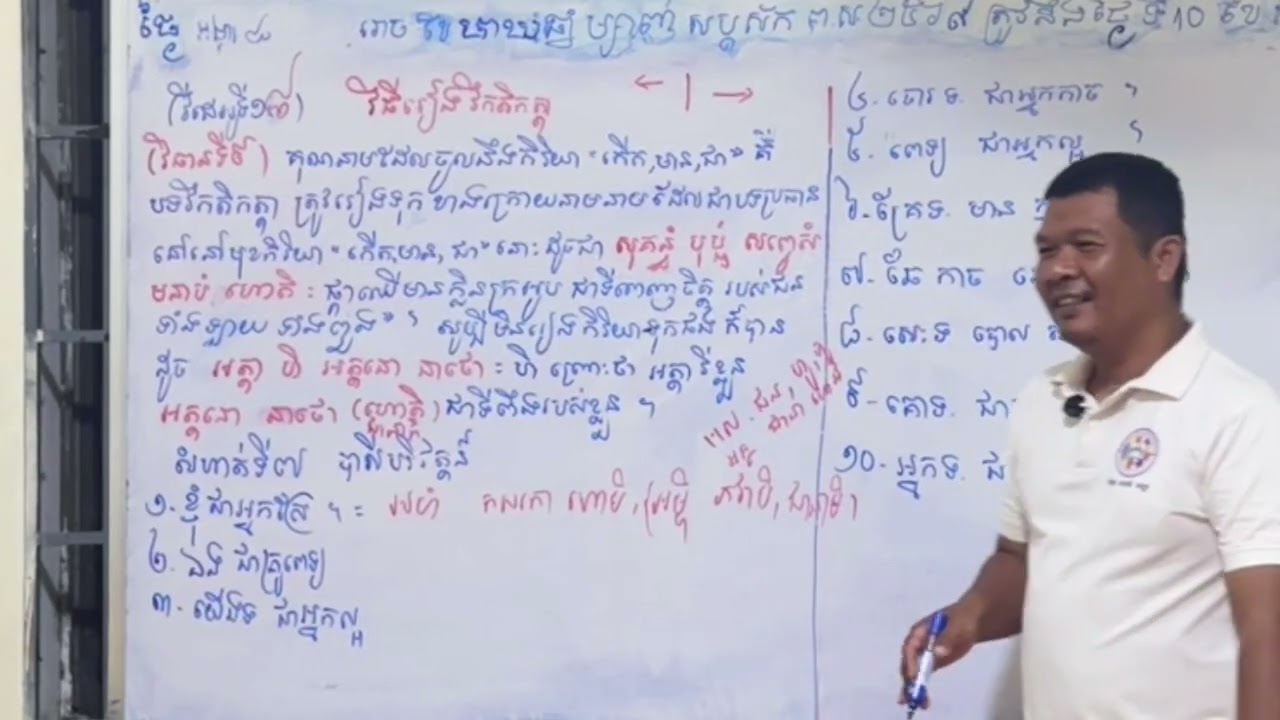 ថ្ងៃ អង្គារ ៤ រោច ខែ ឆ្នាំ ម្សាញ់ សប្តស័ក ព.ស ២៥៦៩ ត្រូវនឹងថ្ងៃ ទី 10 ខែ
(វីដេអូទី១៧) វិធីរៀងវិកតិកត្តា ← | →
(វិធានទី៩) គុណនាមដែលចូលនឹងកិរិយា "កើត,មាន,ជា" គឺ
បទវិកតិកត្តា ត្រូវរៀងទុក ខាងក្រោយនាមនាម ដែលជាបទប្រធាន
នៅនៅមុខកិរិយា "កើត,មាន,ជា" នោះ ដូចជា សុគន្ធំ បុប្ផំ សព្វេសំ
មនាបំ ហោតិ : ផ្កាឈើមានក្លិនក្រអូប ជាទីពេញចិត្ត របស់ជន
ទាំងឡាយ ទាំងពួង" ។ សូម្បីមិនរៀងកិរិយាទុកផង ក៏បាន
ដូច អត្តា ហិ អត្តនោ នាថោ : ហិ ព្រោះថា អត្តា រីខ្លួន
អត្តនោ នាថោ (ហោតិ) ជាទីពឹងរបស់ខ្លួន ។
លំហាត់ទី៧
១. ខ្ញុំជាអ្នកស្រែ ។ = អហំ កសកោ ហោមិ, (អម្ហិ ភវាមិ,
២. ឯង ជាគ្រូពេទ្យ
៣. យើងទ. ជាអ្នកល្អ
៤. ចោរ ទ. ជាអ្នកកាច ។
៥. ពេទ្យ ជាអ្នកល្អ ។
៦. គ្រែទ. មាន
៧. ឆ្កែ កាច
៨. សេះទ បោល
៩. គោទ. ជា
១០. អ្នកទ. ជ